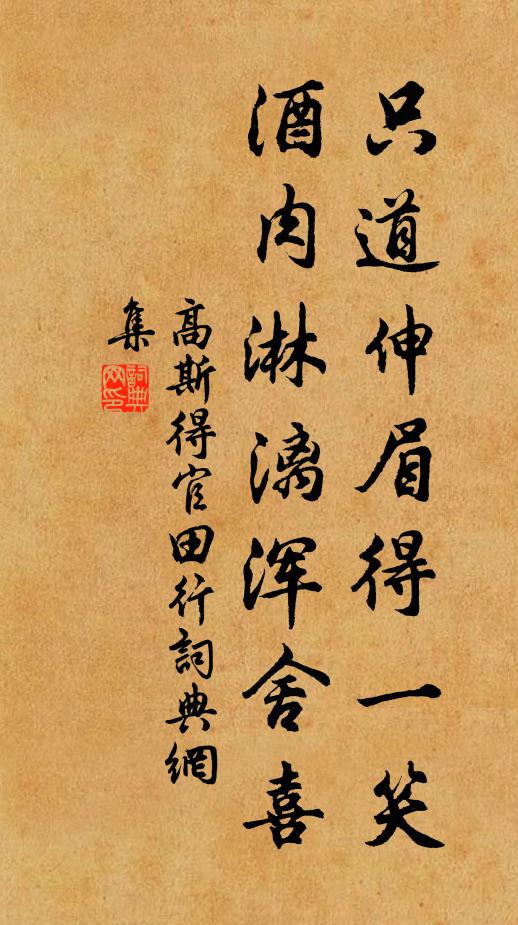 只道伸眉得一笑
酒肉淋漓浑舍喜
高斯得官田行詞典網
集
詞典
网印